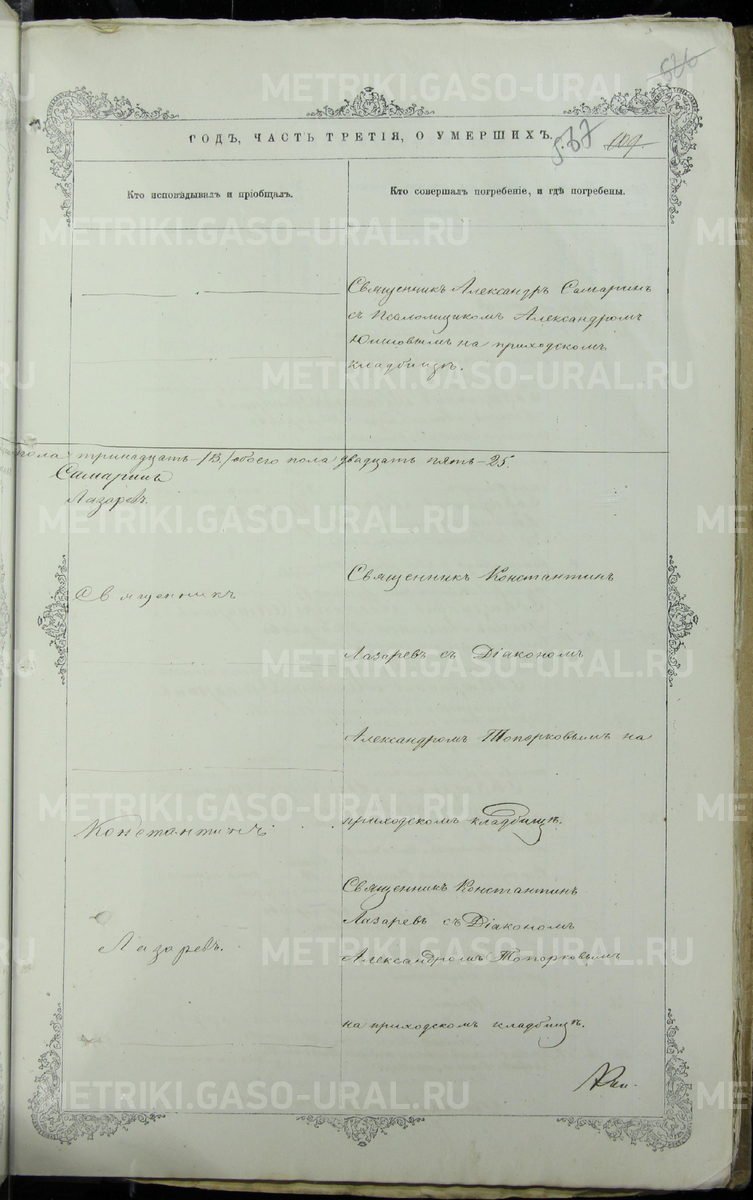 586
ГОДЪ, ЧАСТЬ ТРЕТІЯ, О УМЕРШИХЪ.
587
109
Кто исповѣдывалъ и пріобщалъ.
Кто совершалъ погребеніе, и гдѣ погребены.
Священникъ Александръ Самаринъ
съ Псаломщикомъ Александромъ
на приходскомъ
кладбищѣ.
пола тринадцать-13, обоего пола двадцать пять-25.
Самаринъ
Лазаревъ.
Священникъ
Константинъ
Лазаревъ.
Священникъ Константинъ
Лазаревъ съ Діакономъ
Александромъ Топорковымъ на
приходскомъ кладбищѣ.
Священникъ Константинъ
Лазаревъ съ Діакономъ
Александромъ Топорковымъ
на приходскомъ кладбищѣ.
METRIKI.GASO-URAL.RU